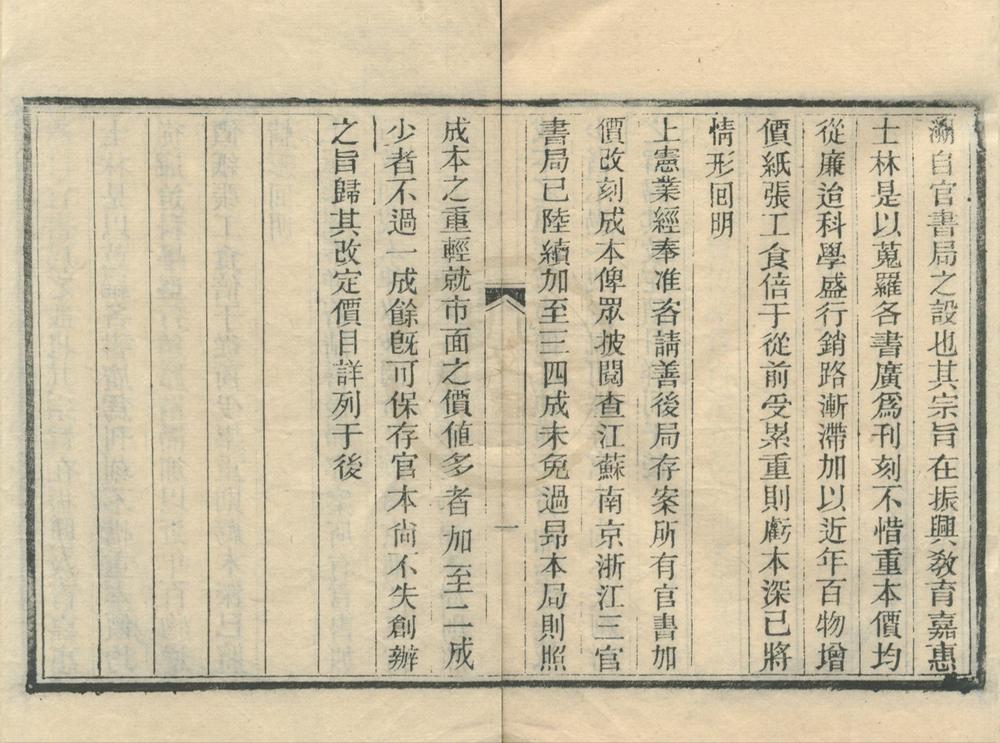 溯自官書局之設也其宗旨在振興敎育嘉惠
士林是以蒐羅各書廣爲刊刻不惜重本價均
從廉迨科學盛行銷路漸滯加以近年百物增
價紙張工食倍于從前受累重則虧本深已將
情形囘明
上憲業經奉准咨請善後局存案所有官書加
價改刻成本俾眾披閱查江蘇南京浙江三官
書局已陸續加至三四成未免過昂本局則照
一
成本之重輕就市面之價値多者加至二成
少者不過一成餘旣可保存官本尙不失創辦
之旨歸其改定價目詳列于後